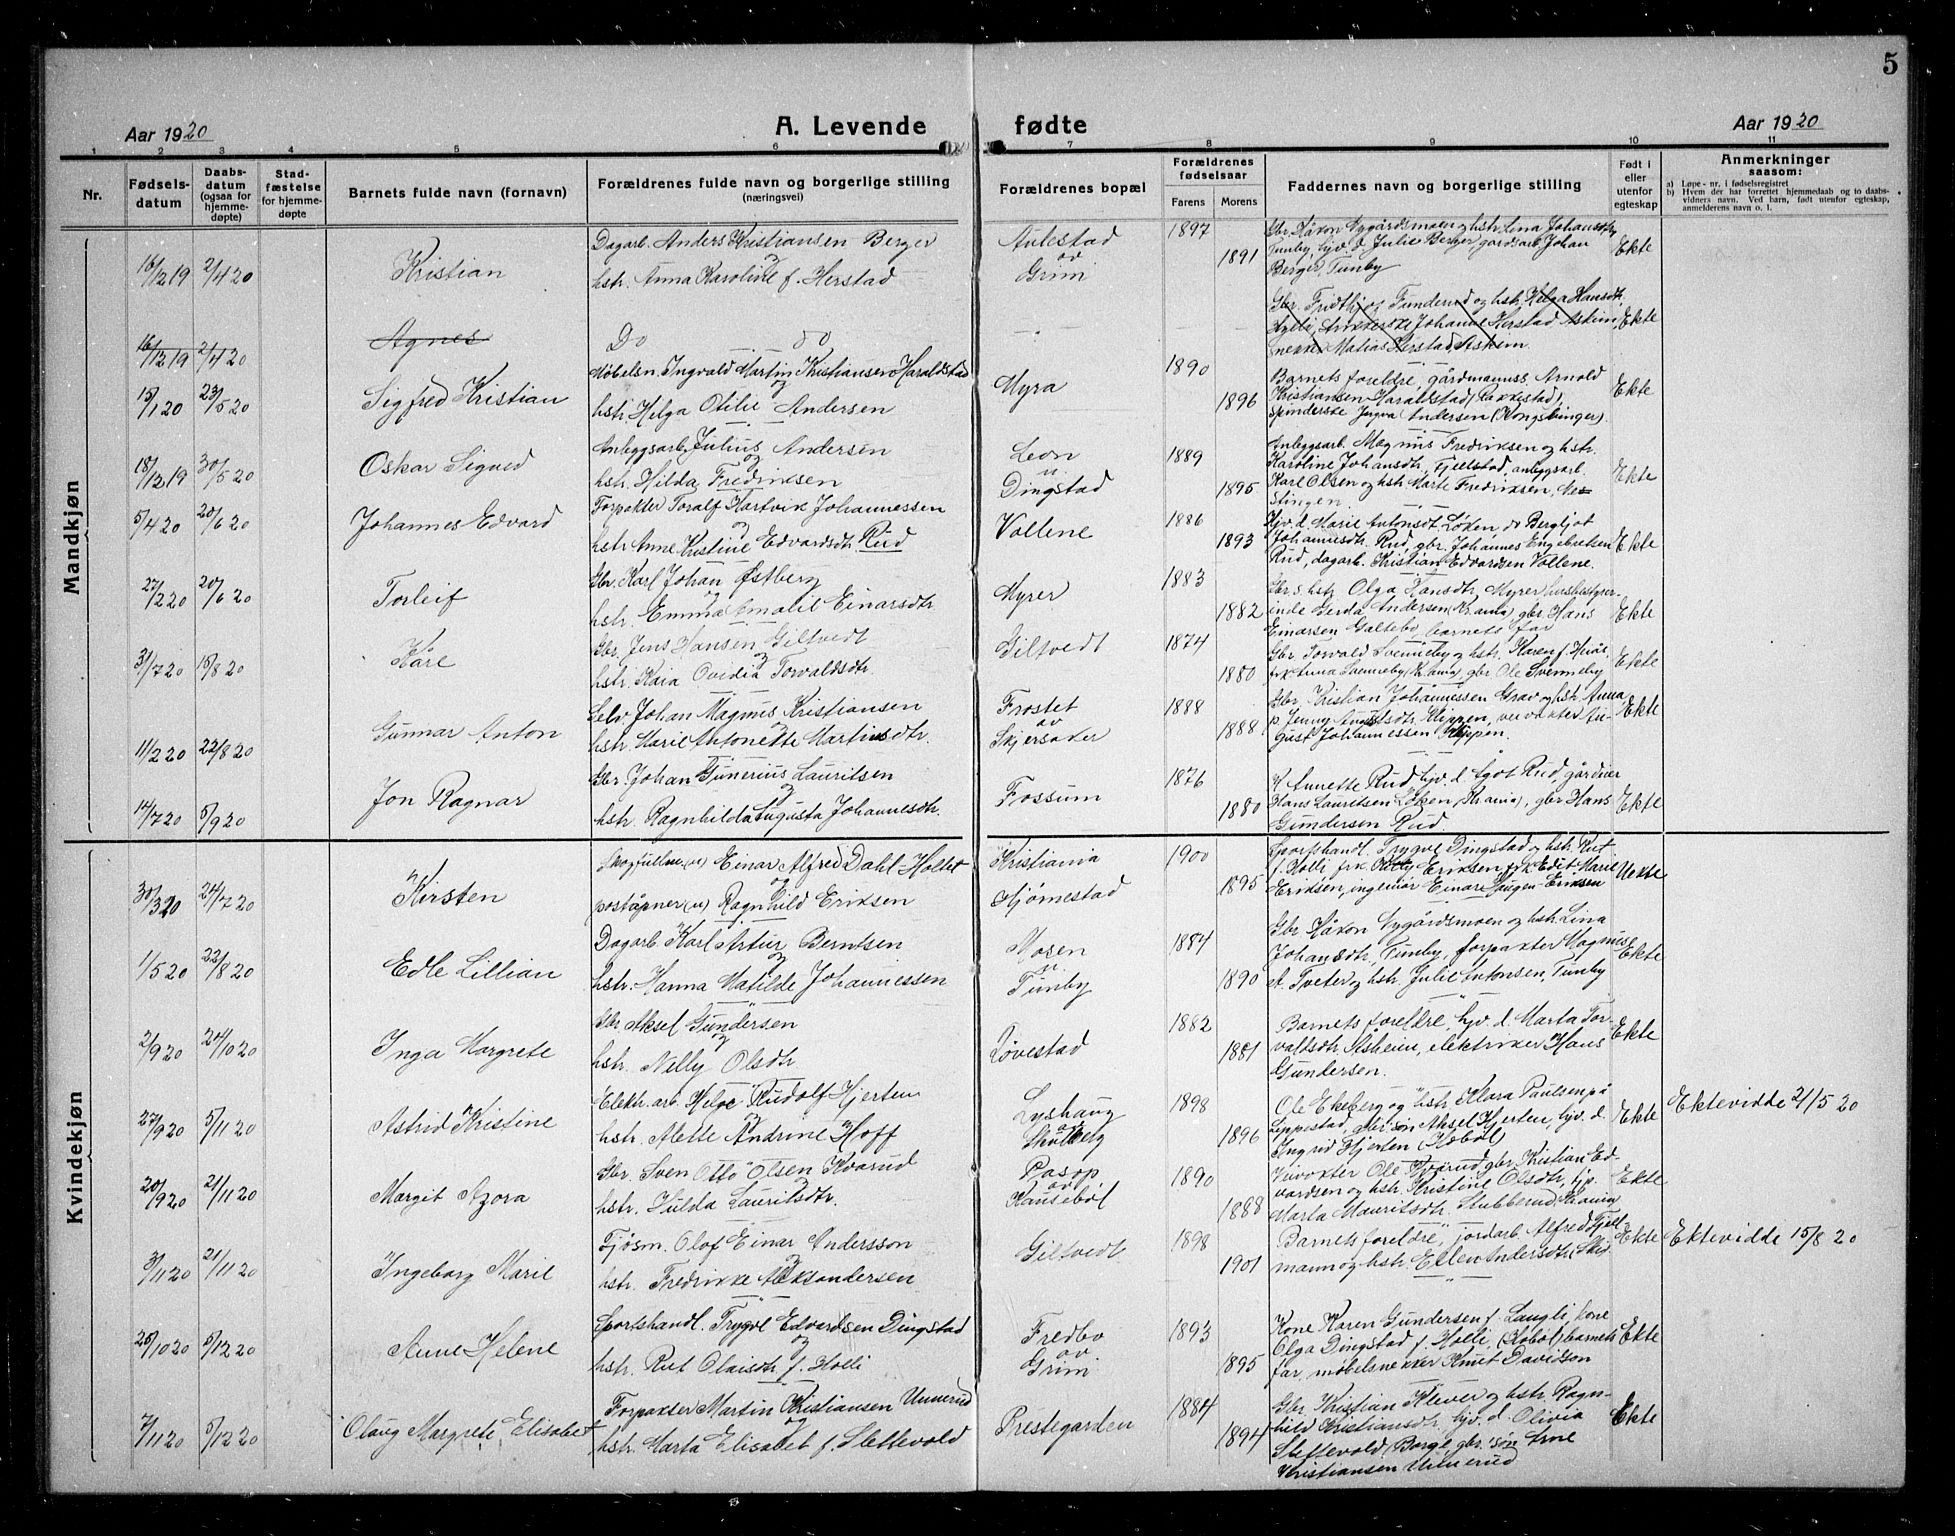 5
Aar 1920
A. Levende fødte
Aar 1920
1 2 3 4 5 6 7 8 9 10 11
Nr.
Fødsels-
datum
Daabs-
datum
(ogsaa for
hjemme-
døpte)
Stad-
fæstelse
for hjemme-
døpte
Barnets fulde navn (fornavn)
Forældrenes fulde navn og borgerlige stilling
(næringsvei)
Forældrenes bopæl
Forældrenes
fødselsaar
Farens Morens
Faddernes navn og borgerlige stilling
Født i
eller
utenfor
egteskap
Anmerkninger
saasom:
a) Løpe-nr. i fødselsregistret
b) Hvem der har forrettet hjemmedaab og to daabs-
vidners navn. Ved barn, født utenfor egteskap,
anmelderens navn o. l.
Mandkjøn
16/12 19 2/4 20 Kristian
Dagarb. Anders Kristiansen Berger
og
hstr. Anna Karoline f. Herstad
Aulestad
av
Grim
1897
1891
Gbr. Håkon Nygårdsmoen og hstr. Lina Johansdtr,
Tunby, hjv. d. Julie Berger, gårdsarb. Johan
Berger, Tunby
Ekte
16/12 19 2/4 20 Agnes
Do do
Gbr. Fridthjof Tunderud og hstr. Helga Hansdtr,
Johanne Herstad, Askim,
Matias Herstad, Askim.
Ekte
15/1 20 23/5 20 Sigfred Kristian
Møbelsn. Ingvald Martin Kristiansen Haraldstad
og
hstr. Helga Otilie Andersen
Myra
1890
1896
Barnets foreldre, gårdmannss. Arnold
Kristiansen Haraldstad (Rakkestad),
spinderske Yngva Andersen (Kongsvinger).
Ekte
18/12 19 30/5 20 Oskar Sigurd
Anleggsarb. Julius Andersen
og
hstr. Hilda Fredriksen
Leon
u.
Dingstad
1889
1895
Anleggsarb. Magnus Fredriksen og hstr.
Karoline Johansdtr, Fjellstad, anleggsarb.
Karl Olsen og hstr Marte Fredriksen,
Ekte
5/4 20 20/6 20 Johannes Edvard
Forpakter Toralf Hartvik Johannessen
og
hstr Anne Kristine Edvardsdtr Rud
Vollene
1886
1893
Hjv. d. Marie Antonsdt. Løken, do Bergljot
Johannesdtr Rud, gbr. Johannes Engebretsen
Rud, dagarb. Kristian Edvardsen Vollene.
Ekte
27/2 20 20/6 20 Torleif
Gbr. Karl Johan Østberg
og
hstr. Emma Amalie Einarsdtr
Myrer
1883
1882
Gbr.s hstr. Olga Hansdtr, Myrer, husbestyrer-
inde Gerda Andersen (Kr.ania), gbr. Hans
Einarsen Galtebo, barnets far
Ekte
3/7 20 15/8 20 Kåre
Gbr. Jens Hansen Giltvedt
og
hstr. Kaia Ovidia Torvaldsdtr.
Giltvedt
1874
1880
Gbr Torvald Svenneby og hstr. Karen f. Huås,
frk Anna Svenneby (Kr.ania), gbr Ole Svenneby
Ekte
11/2 20 22/8 20 Gunnar Anton
Selv. Johan Magnus Kristiansen
og
hstr. Marie Antonette Martinsdtr.
Frostet
av
Skjersaker
1888
1888
Gbr. Kristian Johannessen Grav og hstr Anna,
p. Jenny Augustsdtr. Klippen, Au-
gust Johannessen Klippen.
Ekte
14/7 20 5/9 20 Jon Ragnar
Gbr. Johan Gunerius Lauritsen
og
hstr. Ragnhilda Augusta Johannesdtr.
Fossum
1876
1880
K Annette Rud, hjv. d. Rud, gårdeier
Hans Lauritsen Løken (Kr.ania), gbr Hans
Gundersen Rud.
Ekte
Kvindekjøn
30/3 20 24/7 20 Kirsten
Einar Alfred Dahl-Holtet
og
poståpner (u) Ragnhild Eriksen
Kristiania
Hjømestad
1900
1895
Sportshandl. Trygve Dingstad og hstr. Rut
f. Holli, frk Eriksen, frk Edit Marie
Eriksen, ingeniør Einar Haugen-Eriksen
Uekte
1/5 20 22/8 20 Edle Lillian
Dagarb. Karl Artur Berntsen
og
hstr. Hanna Matilde Johannessen
Mosen
u.
Tunby
1884
1890
Gbr. Håkon Nygårdsmoen og hstr. Lina
Johansdtr, Tunby, forpakter Magnus
A. Tveter og hstr. Julie Antonsen, Tunby
Ekte
2/9 20 24/10 20 Inga Margrete
Gbr Aksel Gundersen
og
hstr. Nelly Olsdtr
Løvestad
1882
1881
Barnets foreldre, hjv. d. Marta Tor-
valdsdtr Askeim, elektriker Hans
Gundersen.
Ekte
27/9 20 5/11 20 Astrid Kristine
Elektr. arb. Helge Rudolf Hjerten
og
hstr. Alette Andrine Hoff
Lyshaug
av
Skulberg
1898
1896
Ole Ekeberg og hstr Klara Paulsen på
Lippestad, gbr.søn Aksel Hjerten, hjv. d.
Ingrid Hjerten (Hobøl)
Ekte
Ektevidde 21/5 20
20/9 20 21/11 20 Margit Azora
Gbr. Sven Otto Olsen Kvarud
og
hstr. Hulda Lauritsdtr.
Pasop
av
Kausebøl
1890
1888
Ole Kvarud, gbr. Kristian Ed-
vardsen og hstr Kristine Olsdtr, hjp.
Marta Mauritsdtr. Stubberud, Kr.ania
Ekte
3/11 20 21/11 20 Ingeborg Marie
Fjøsm. Olof Einar Andersson
og
hstr. Fredrikke Aleksandersen
Giltvedt
1898
1901
Barnets foreldre, jordarb. Alfred Fjell-
mann og hstr. Ellen Andersdtr.
Ekte
Ektevidde 15/8 20
25/10 20 5/12 20 Anne Helene
Sportshandl. Trygve Edvardsen Dingstad
og
hstr. Rut Olaisdtr f. Holli
Fredbo
av
Grim
1893
1895
Kone Karen Gundersen f. Laugli, kone
Olga Dingstad f. Holli, (Hobøl) barnets
far, møbelsnekker Knut Davidson
Ekte
7/11 20 5/12 20 Olaug Margrete Elisabet
Forpakter Martin Kristiansen Unnerud
og
hstr. Marta Elisabet f. Slettevold
Prestegarden
1884
1894
Gbr. Kristian Kløver og hstr. Ragn-
hild Kristiansdtr, hjv. d. Olivia
Slettevold, Borge, gbr.søn Arne
Kristiansen Unnerud
Ekte